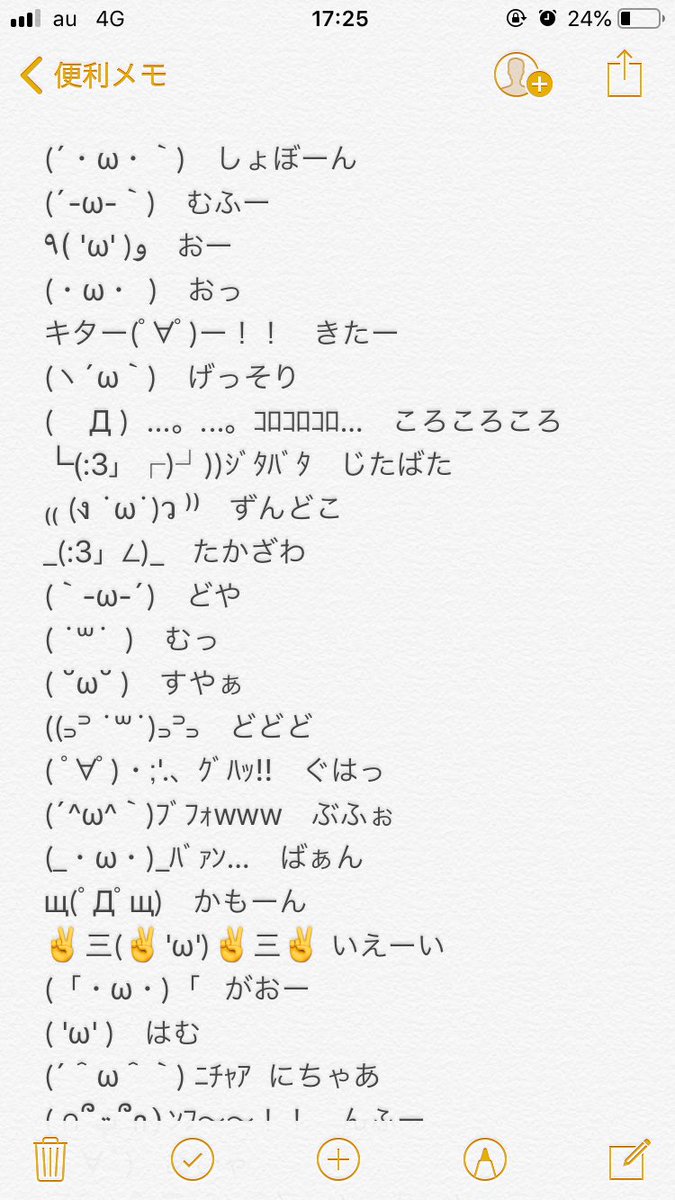 au 4G 17:25 24%
便利メモ
(´・ω・｀)　しょぼーん
(´-ω-｀)　むふー
٩( 'ω' )و　おー
(・ω・ )　おっ
キター(ﾟ∀ﾟ)ー！！　きたー
(ヽ´ω｀)　げっそり
(　Д ) …。…。ｺﾛｺﾛｺﾛ…　ころころころ
└(:3」┌)┘))ｼﾞﾀﾊﾞﾀ　じたばた
₍₍ (ง ˙ω˙)ว ⁾⁾　ずんどこ
_(:3」∠)_　たかざわ
(｀-ω-´)　どや
( ˙꒳˙ )　むっ
( ˘ω˘ )　すやぁ
((⊃⊃ ˙꒳˙)⊃⊃⊃　どどど
( ﾟ∀ﾟ)・;'.、ｸﾞﾊｯ!!　ぐはっ
(´^ω^｀)ﾌﾞﾌｫwww　ぶふぉ
(_・ω・)_ﾊﾞｧﾝ…　ばぁん
щ(ﾟДﾟщ)　かもーん
✌三(✌ 'ω')✌三✌ いえーい
(「・ω・)「　がおー
( 'ω' )　はむ
(´＾ω＾｀) ﾆﾁｬｱ にちゃあ